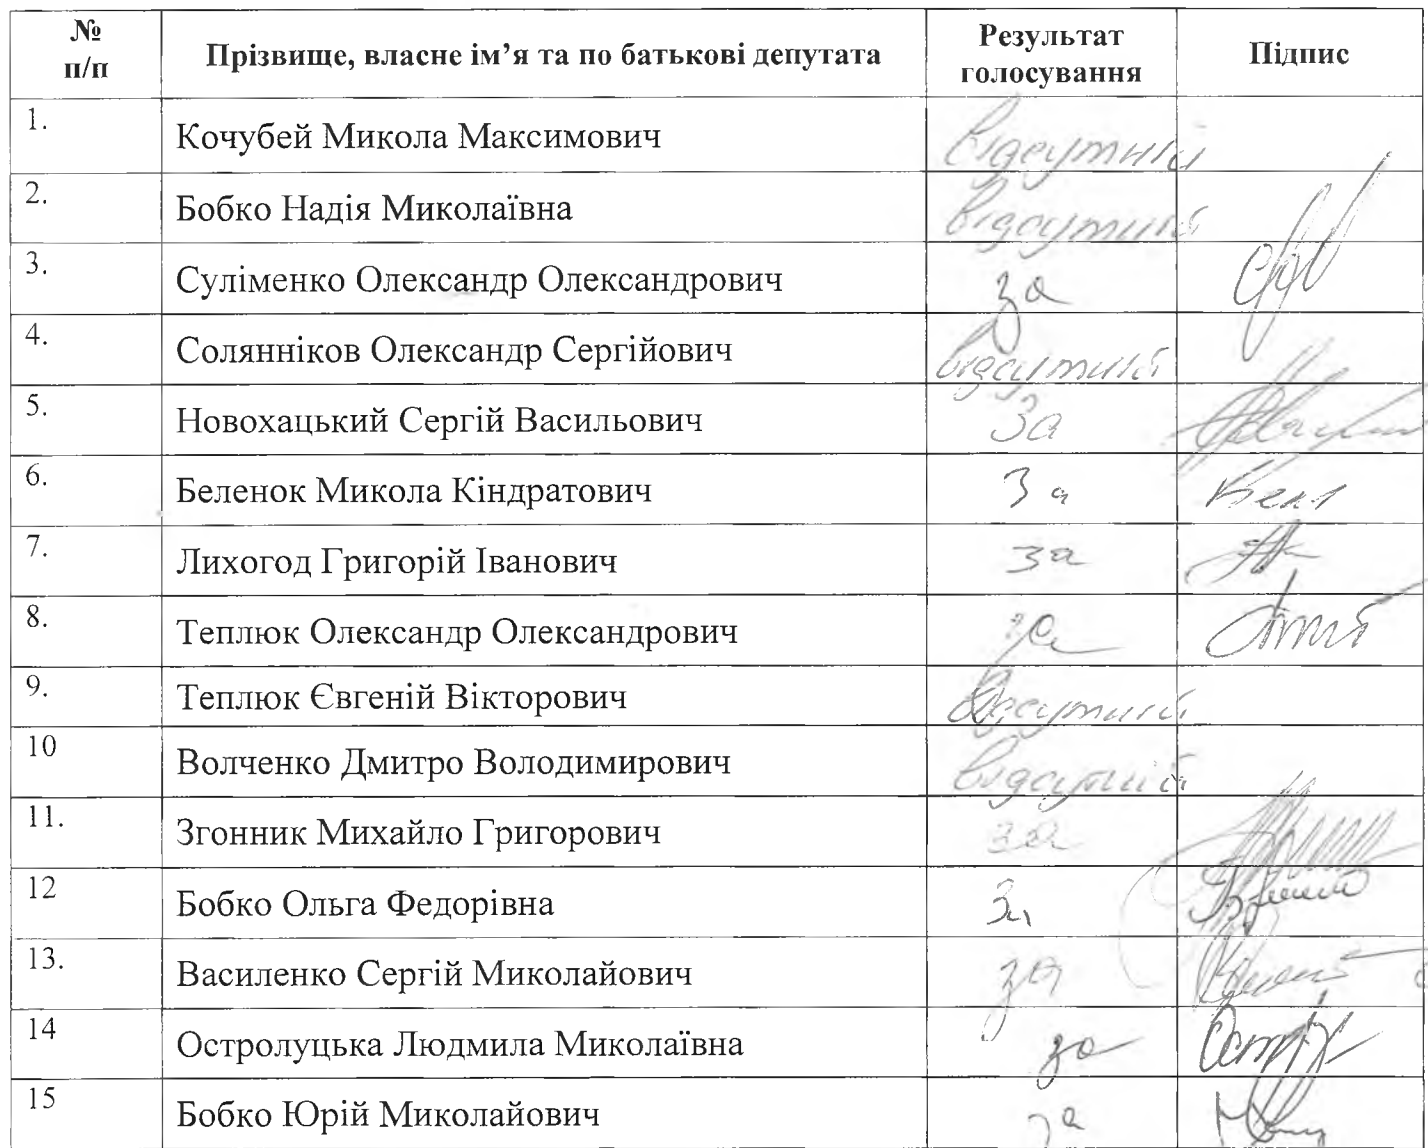 №
п/п
Прізвище, власне ім’я та по батькові депутата
Результат
голосування
Підпис
1. Кочубей Микола Максимович відсутній
2. Бобко Надія Миколаївна відсутній
3. Суліменко Олександр Олександрович за
4. Солянніков Олександр Сергійович відсутній
5. Новохацький Сергій Васильович За
6. Беленок Микола Кіндратович За
7. Лихогод Григорій Іванович за
8. Теплюк Олександр Олександрович за
9. Теплюк Євгеній Вікторович відсутній
10 Волченко Дмитро Володимирович відсутній
11. Згонник Михайло Григорович за
12 Бобко Ольга Федорівна За
13. Василенко Сергій Миколайович за
14 Остролуцька Людмила Миколаївна за
15 Бобко Юрій Миколайович за